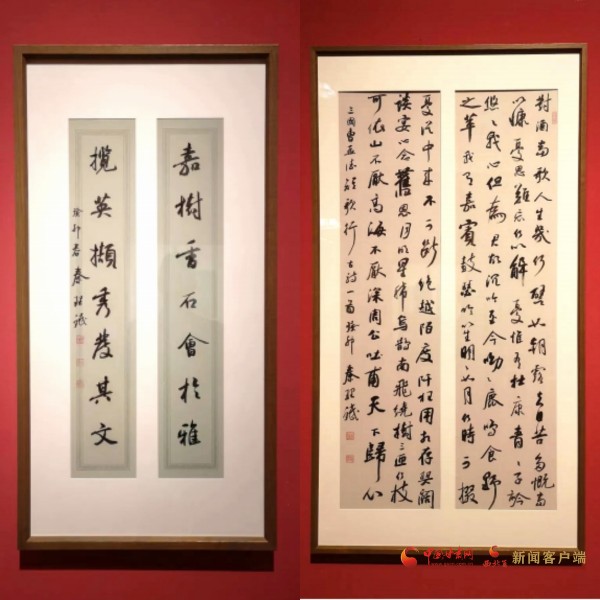 嘉樹石會於雅
攬英擷秀發其文
癸卯春 秦理斌
對酒當歌人生幾何譬如朝露去日苦多慨當
以慷憂思難忘何以解憂惟有杜康青〻子衿
悠〻我心但為君故沉吟至今呦〻鹿鳴食野
之苹我有嘉賓鼓瑟吹笙明〻如月何時可掇
憂從中來不可斷絕越陌度阡枉用相存契闊
談宴心念舊恩月明星稀烏鵲南飛繞樹三匝何枝
可依山不厭高海不厭深周公吐哺天下歸心
三國曹孟德短歌行古詩一首 癸卯 秦理斌
中国甘肃网
新闻客户端